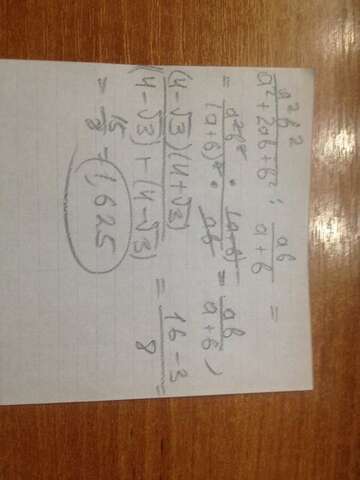 a²b² / (a²+2ab+b²) : ab / (a+b) =
= a²b² / (a+b)² · (a+b) / ab = ab / (a+b),
(4-√3)(4+√3) / ((4-√3)+(4-√3)) = (16-3) / 8 =
= 1,625